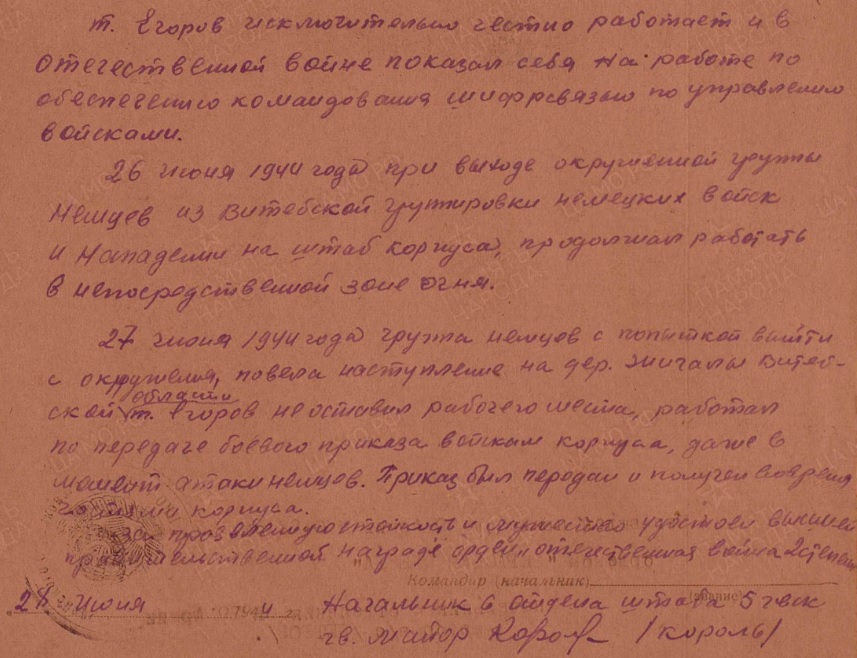 т. Егоров исключительно честно работает и в
отечественной войне показал себя на работе по
обеспечению командования шифрсвязью по управлению
войсками.
26 июня 1944 года при выходе окруженной группы
немцев из Витебской группировки немецких войск
и нападении на штаб корпуса, продолжал работать
в непосредственной зоне огня.
27 июня 1944 года группа немцев с попыткой выйти
с окружения, повела наступление на дер. Жигалы Витеб-
ской области т. Егоров не оставил рабочего места, работал
по передаче боевого приказа войскам корпуса, даже в
момент атаки немцев. Приказ был передан и получен вовремя
частями корпуса.
За проявленную стойкость и мужество удостоен высшей
правительственной награде орден отечественная война 2 степени
Командир (начальник)
(звание)
"28" Июня 1944 Начальник 6 отдела штаба 5 гвск
гв. майор Король /король/